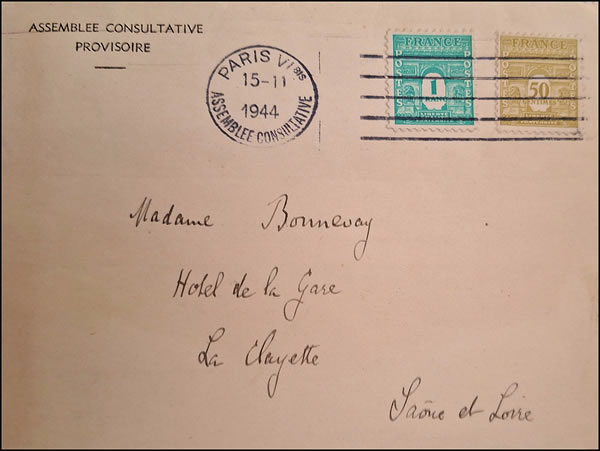 ASSEMBLEE CONSULTATIVE
PROVISOIRE
PARIS VI BIS
15-11
1944
ASSEMBLEE CONSULTATIVE
FRANCE
POSTES
1
FRANC
FRANCE
POSTES
50
CENTIMES
Madame Bonnevay
Hotel de la Gare
La Clayette
Saône et Loire